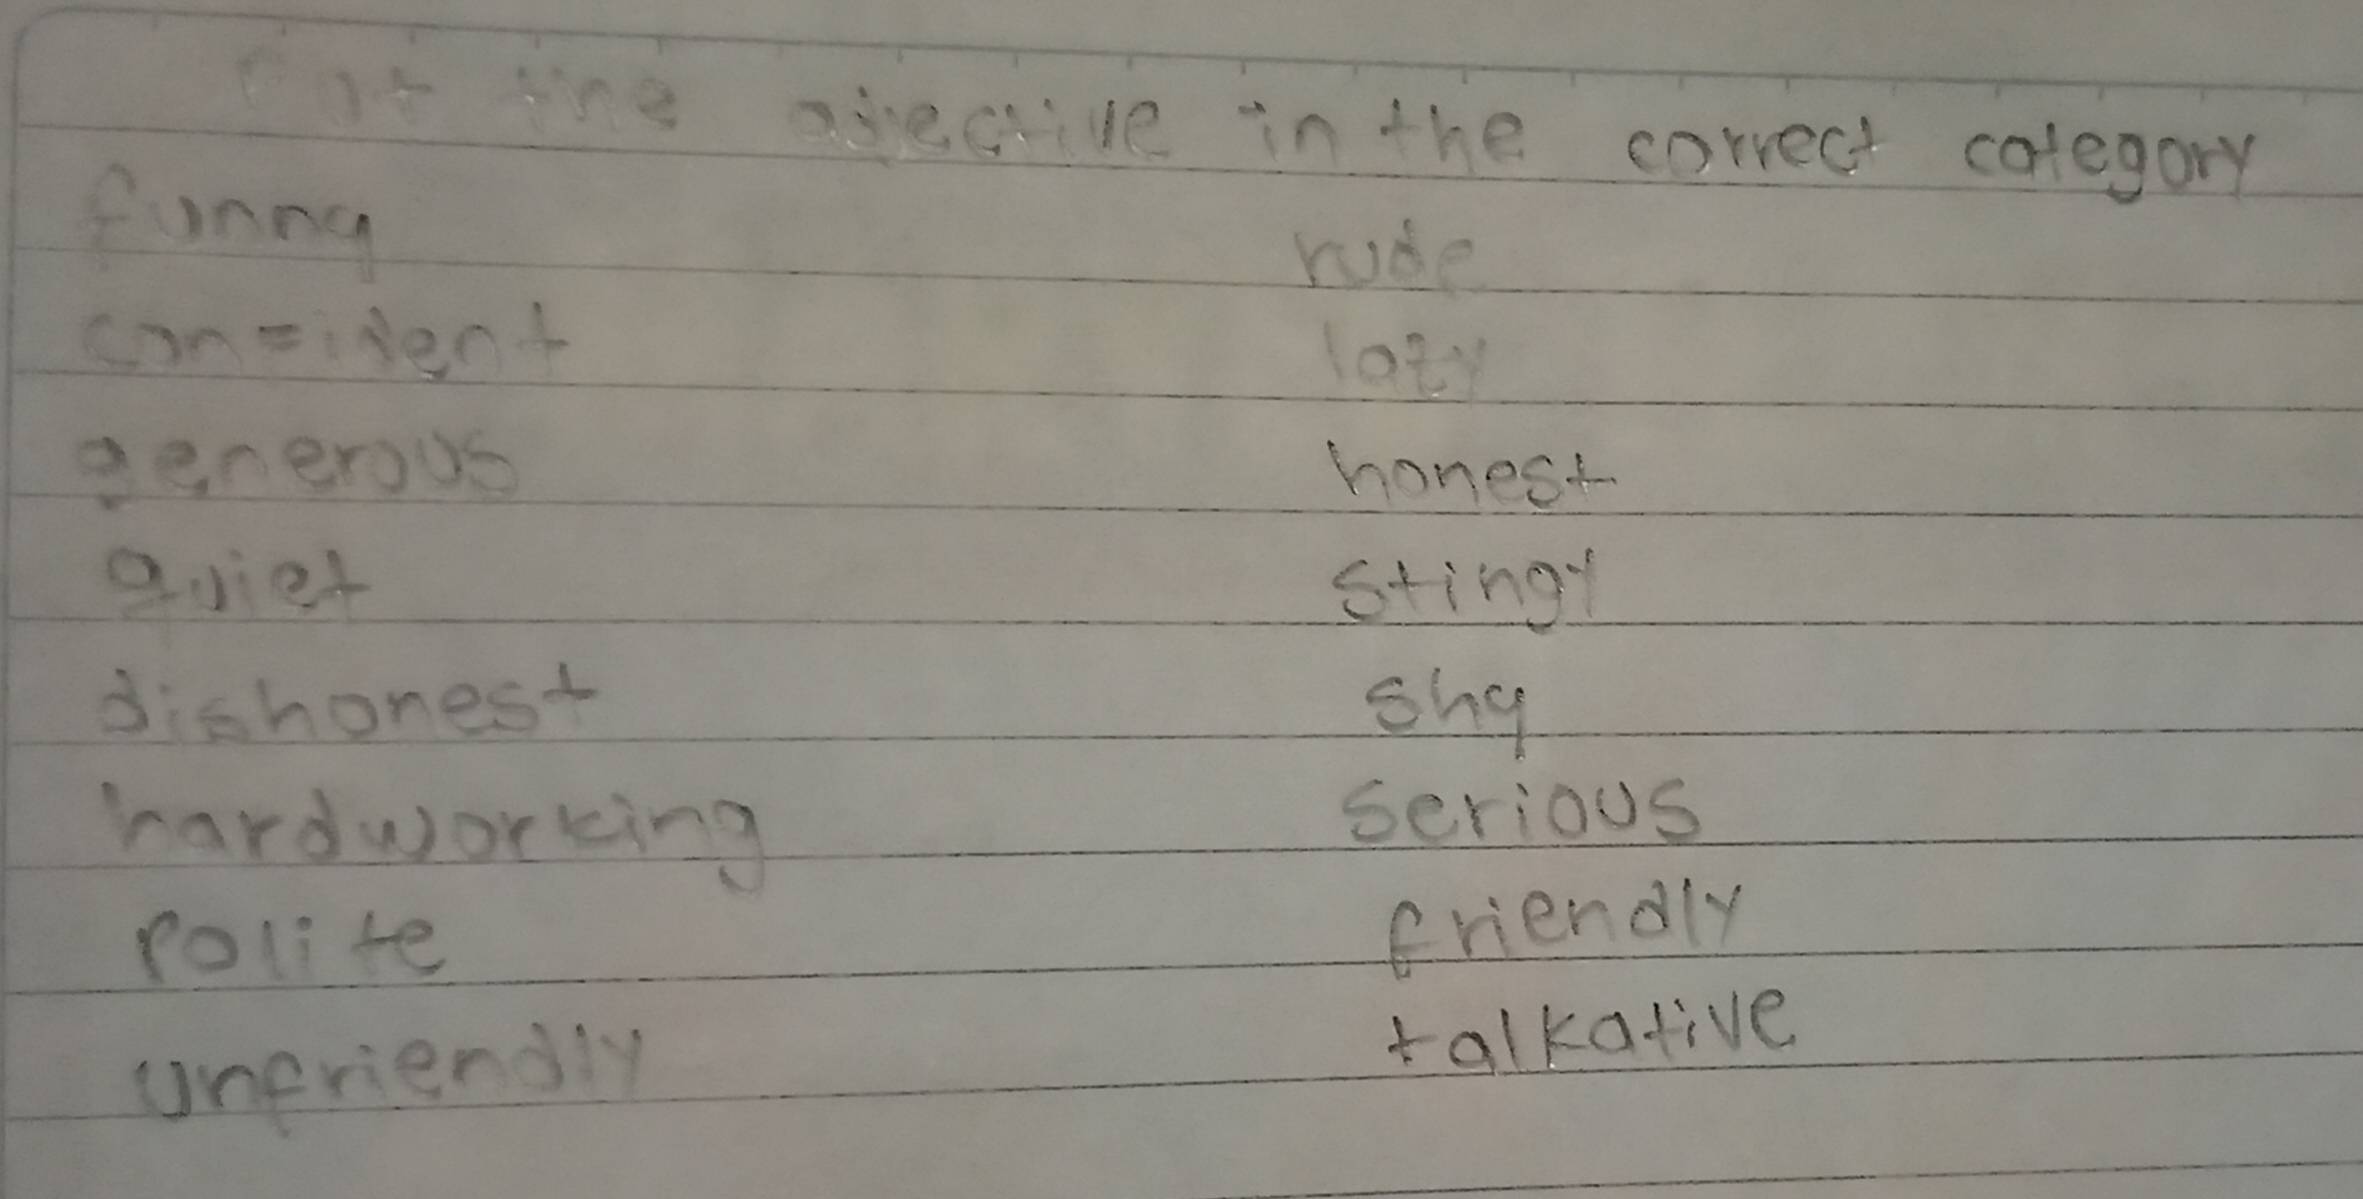 Put the adjective in the correct category
funny rude
confident lazy
generous honest
quiet stingy
dishonest shy
hardworking serious
polite friendly
unfriendly talkative